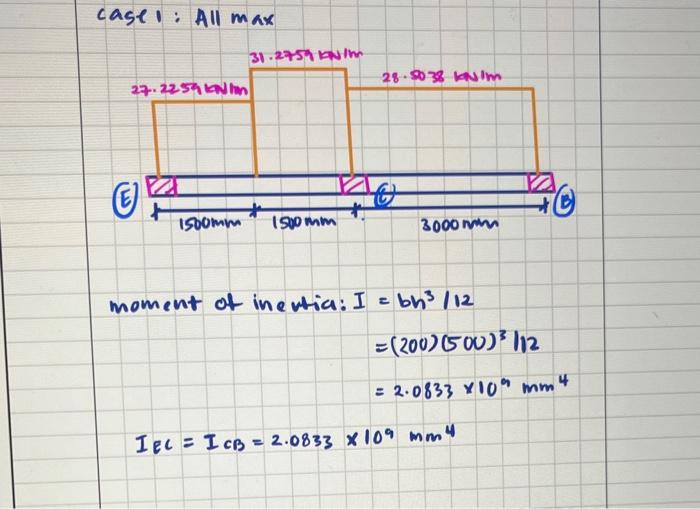 case 1 : All max
31.2759 kN/m
27.2259 kN/m
28.5038 kN/m
E
C
B
1500mm
1500mm
3000mm
moment of inertia: I = bh³/12
=(200)(500)³/12
= 2.0833 x10⁹ mm⁴
IEC = ICB = 2.0833 x 10⁹ mm⁴